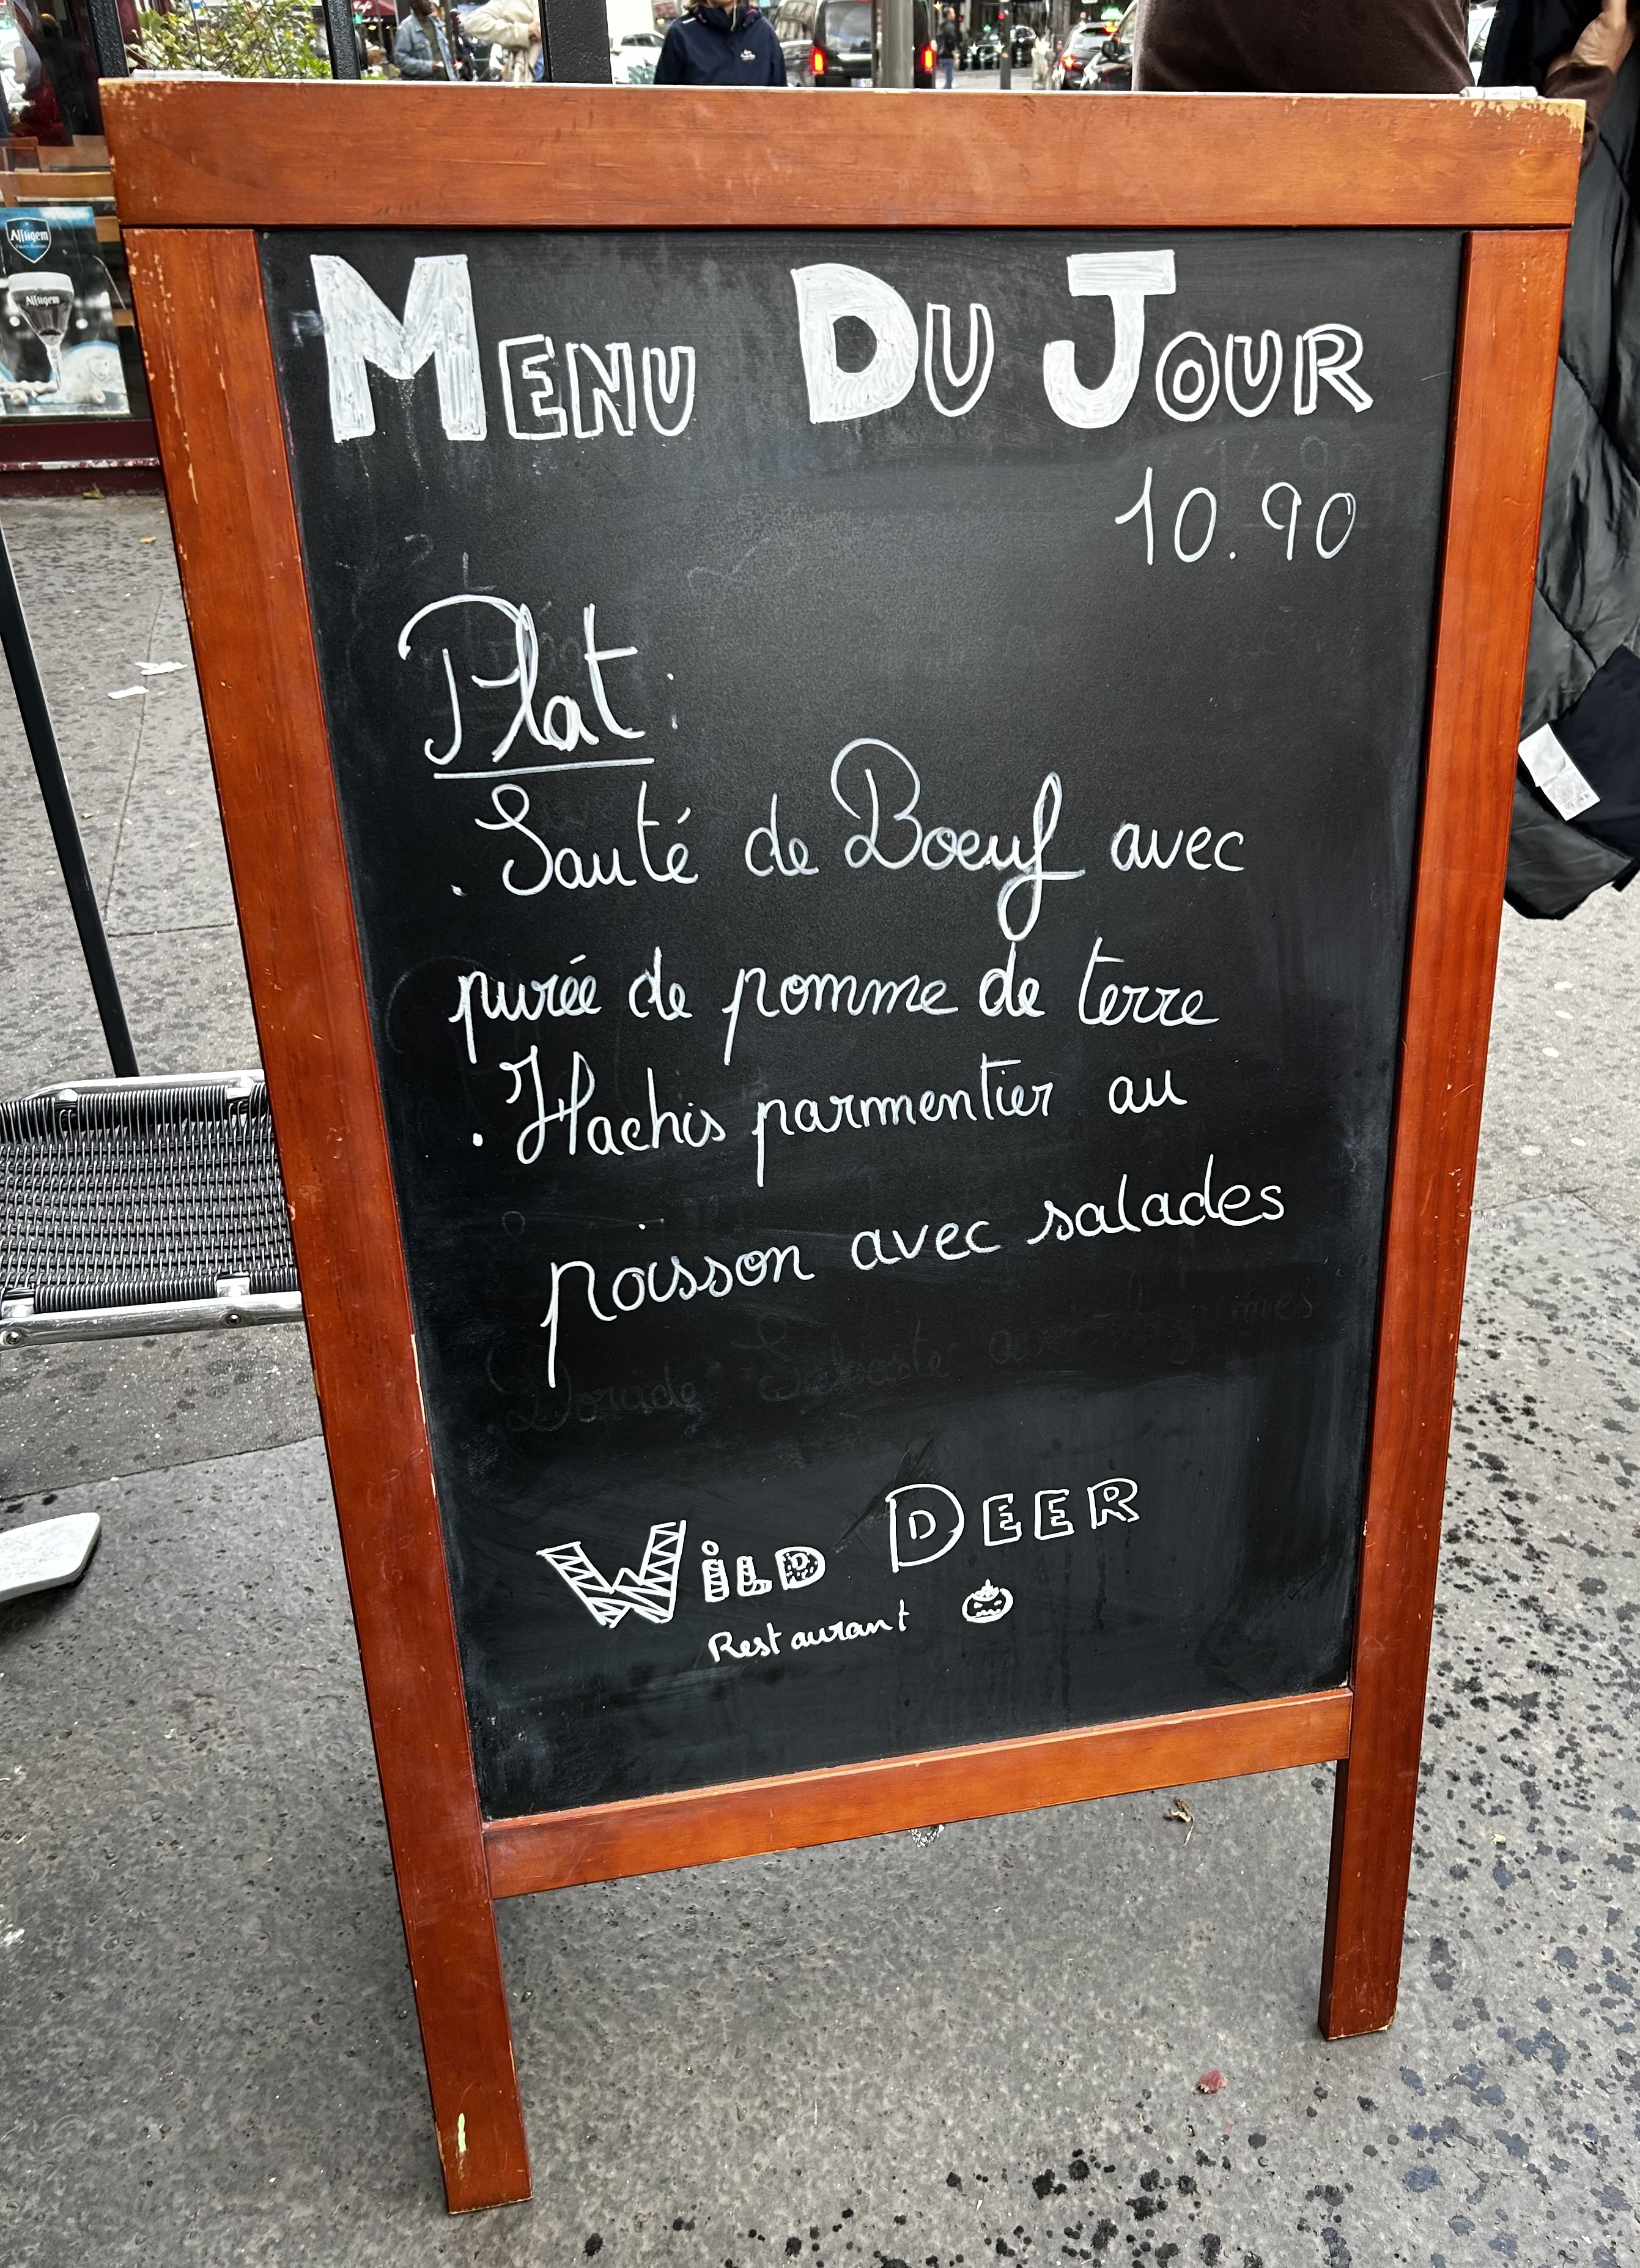 MENU DU JOUR
10.90
Plat:
. Sauté de Boeuf avec
purée de pomme de terre
. Hachis parmentier au
poisson avec salades
WiLD DEER
Restaurant
Affligem
Affligem